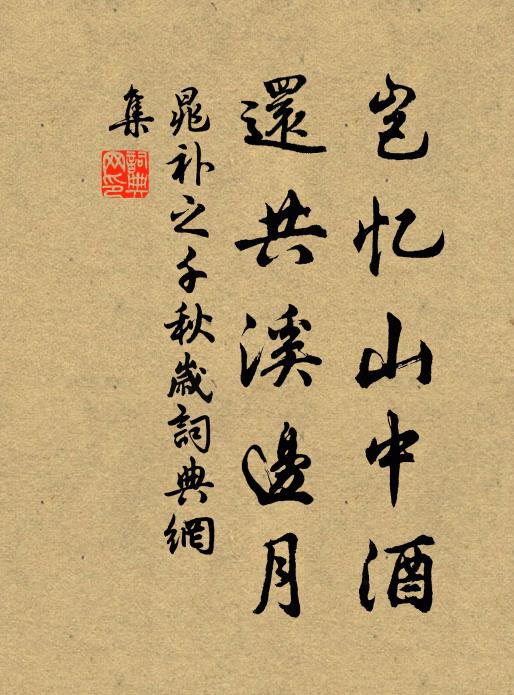 岂忆山中酒
還共溪邊月
晁补之千秋歲詞典網
集
詞典
网印